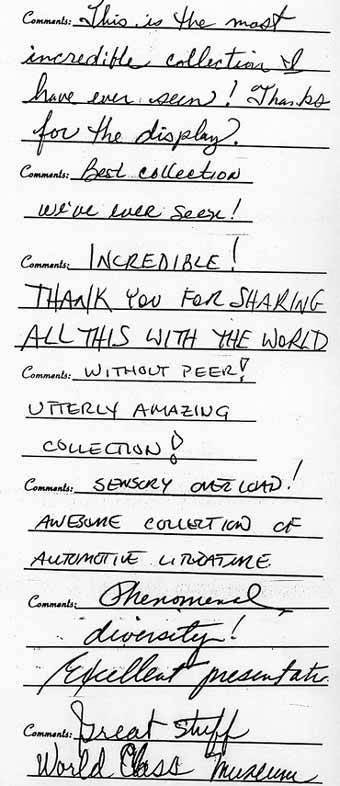 Comments: This is the most
incredible collection I
have ever seen! Thanks
for the display.
Comments: Best collection
we've ever seen!
Comments: INCREDIBLE!
THANK YOU FOR SHARING
ALL THIS WITH THE WORLD
Comments: WITHOUT PEER!
UTTERLY AMAZING
COLLECTION!
Comments: SENSORY OVERLOAD!
AWESOME COLLECTION OF
AUTOMOTIVE LITERATURE.
Comments: Phenomenal
diversity!
Excellent presentati
Comments: Great Stuff
World Class Museum